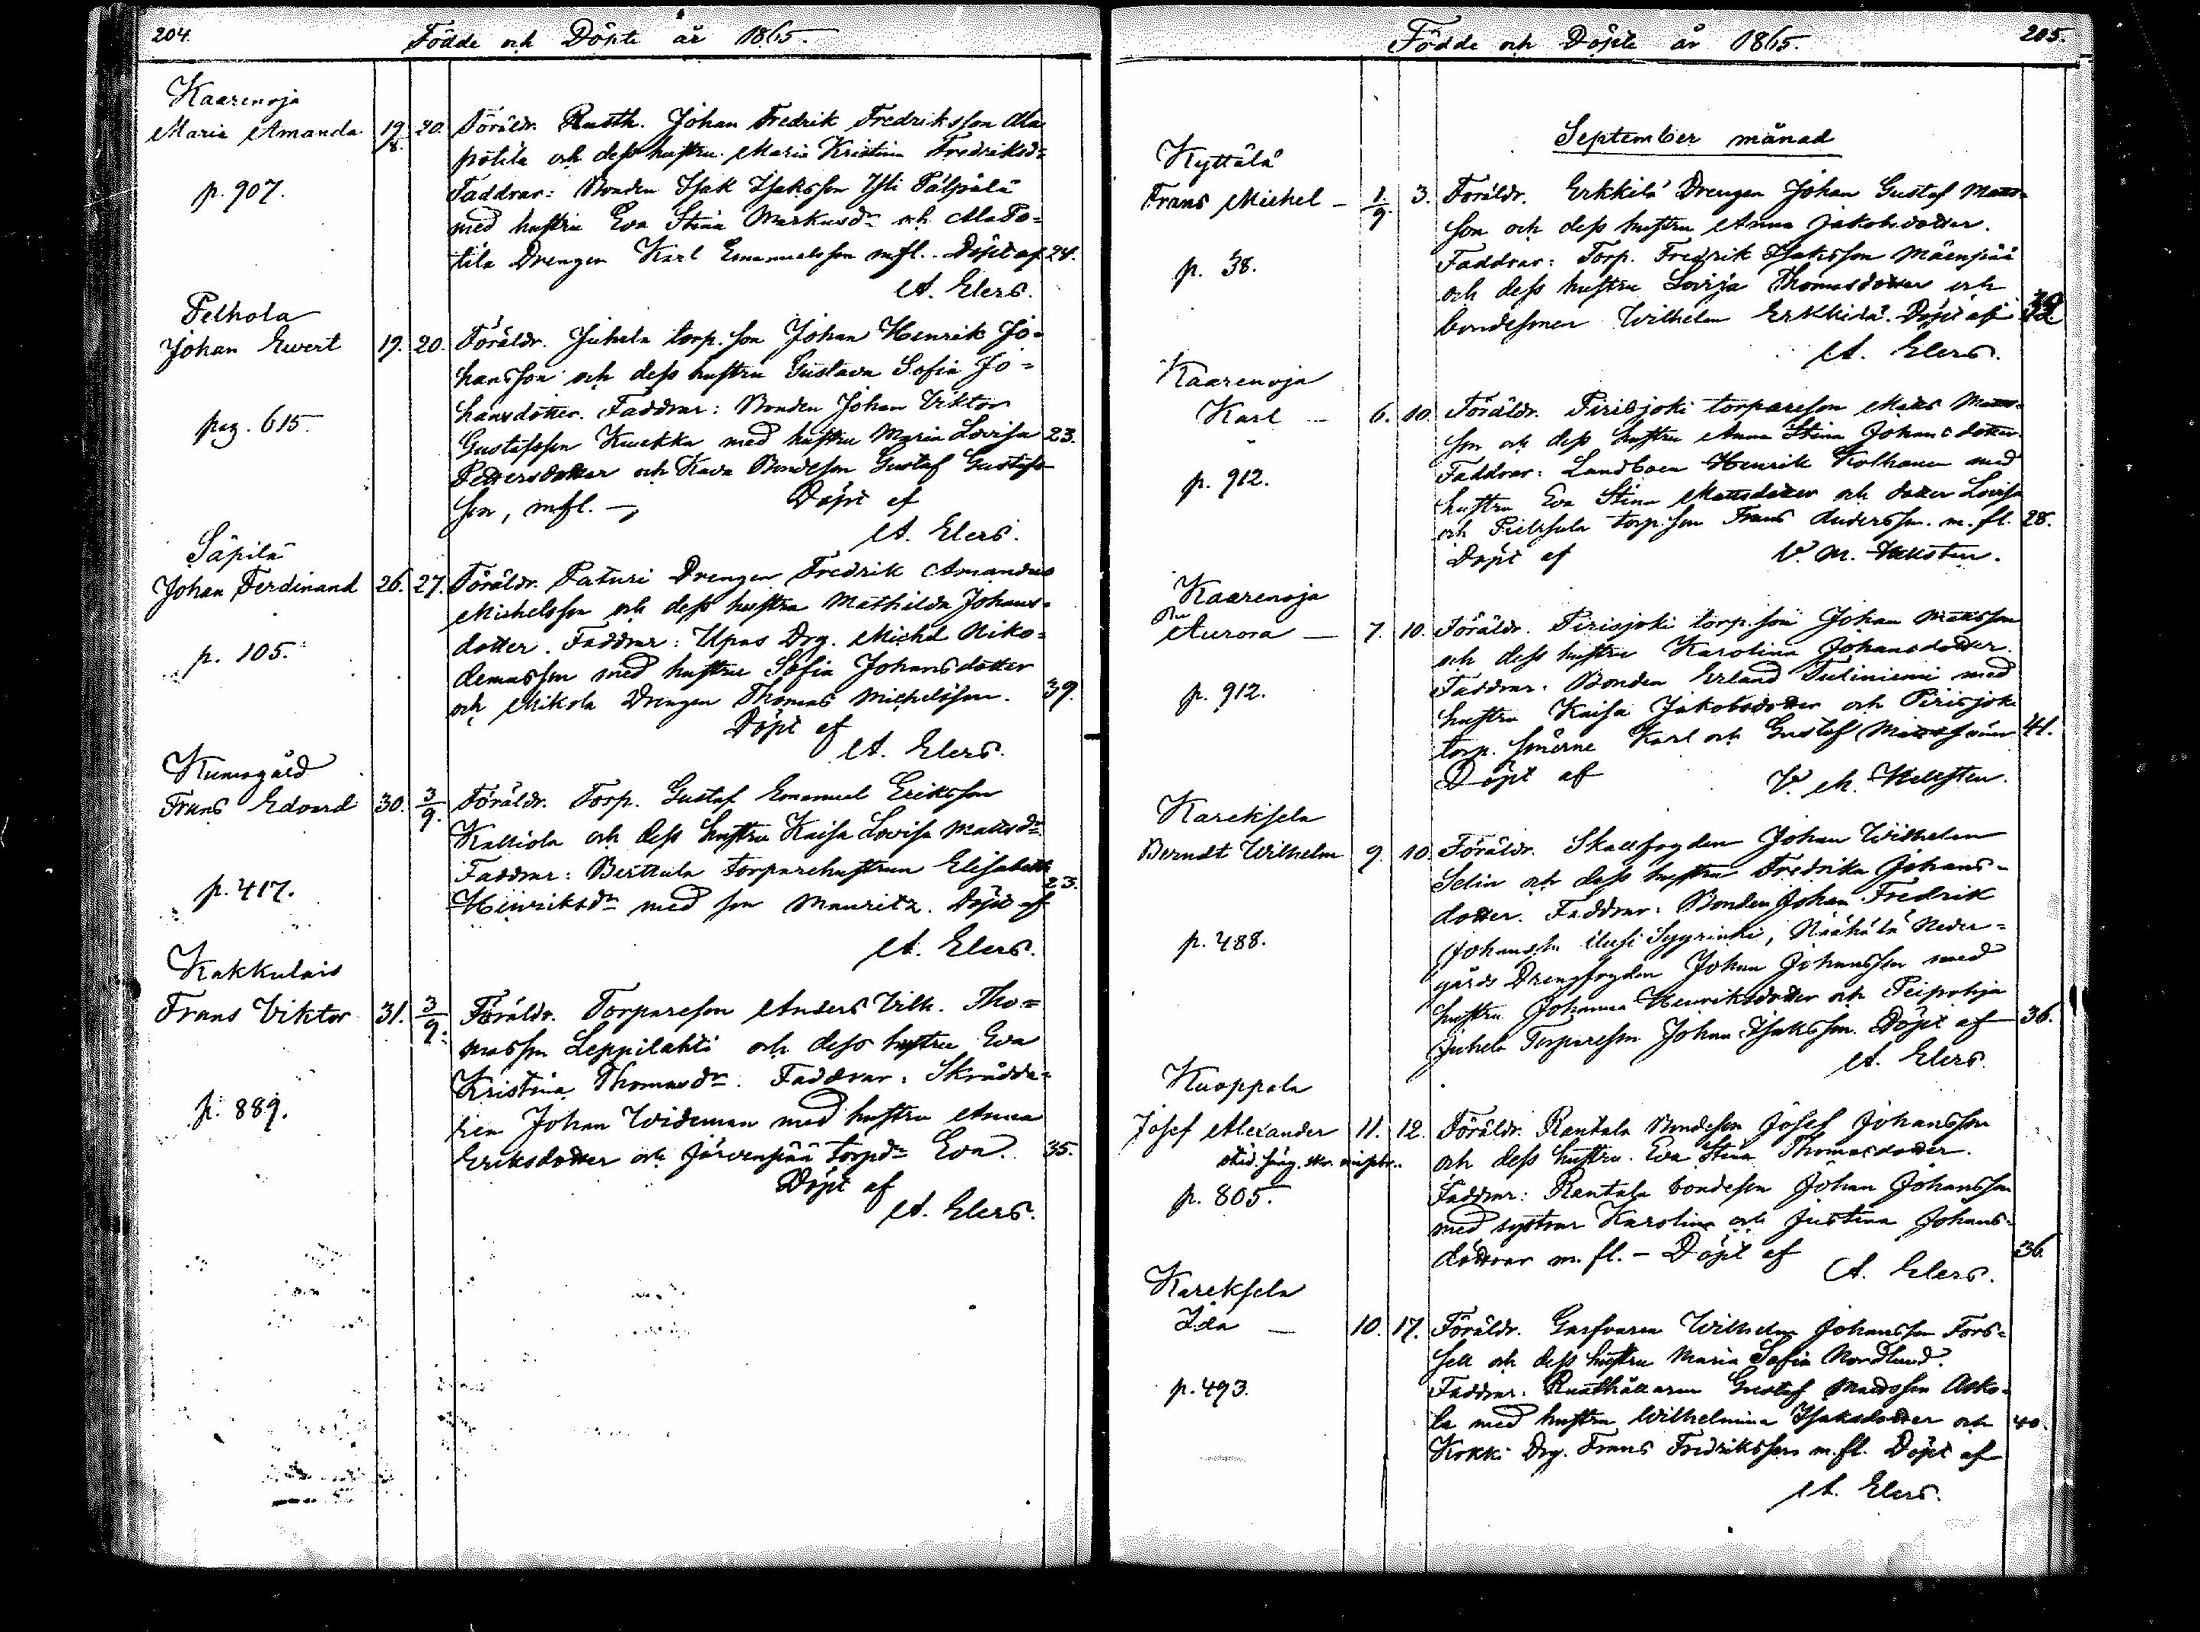 204.
Födde och Döpte år 1865.
Kaarenoja
Maria Amanda 19/8. 20. Föräldr. Rusth. Johan Fredrik Fredriksson Ala
potila och dess hustru Maria Kristina Fredriksdr
p. 907. Faddrar: Bonden Isak Isaksson Isti Pälpälä
med hustru Eva Stina Markusdr och Ala Po=
tila Drengen Karl Emanuelsson m.fl. Döpt af 24.
A. Elers.
Pelhola
Johan Ewert 19. 20. Föräldr. Juhela torp. son Johan Henrik Jo=
hansson och dess hustru Gustava Sofia Jo=
hansdotter. Faddrar: Bonden Johan Viktor
pag. 615. Gustafsson Kuekka med hustru Maria Lovisa 23.
Pettersdotter och Kava Bondeson Gustaf Gustafs
son, m.fl. Döpt af
A. Elers.
Säpilä
Johan Ferdinand 26. 27. Föräldr. Paturi Drengen Fredrik Amandus
Michelsson och dess hustru Mathilda Johans=
dotter. Faddrar: Upas Drg. Michel Niko=
p. 105. demusson med hustru Sofia Johansdotter
och Mikola Drengen Thomas Michelsson. 39.
Döpt af
A. Elers.
Kumogård
Frans Edvard 30. 3/9. Föräldr. Torp. Gustaf Emanuel Eriksson
Kalliola och dess hustru Kaisa Lovisa Mattsdr
Faddrar: Berttula torparehustrun Elisabeth 23.
p. 417. Henriksdr med son Mauritz. Döpt af
A. Elers.
Kakkulais
Frans Viktor 31. 3/9. Föräldr. Torpareson Anders Vilh. Tho=
masson Leppilahti och dess hustru Eva
Kristina Thomasdr. Faddrar: Skrädda=
p. 889. ren Johan Wideman med hustru Anna
Eriksdotter och Järvenpää torpdr Eva. 35.
Döpt af
A. Elers.
Födde och Döpte år 1865.
205.
September månad
Kyttälä
Frans Michel - 1/9. 3. Föräldr. Erkkilä Drengen Johan Gustaf Matts=
son och dess hustru Anna Jakobsdotter.
p. 38. Faddrar: Torp. Fredrik Isaksson Mäenpää
och dess hustru Lovisa Thomasdotter och
bondesonen Wilhelm Erkkilä. Döpt af
A. Elers.
Kaarenoja
Karl - 6. 10. Föräldr. Pirisjoki torpareson Matts Matts=
son och dess hustru Anna Stina Johansdotter
Faddrar: Landboen Henrik Kolhanen med
p. 912. hustru Eva Stina Mattsdotter och dotter Lovisa
och torp. son Frans Andersson. m. fl. 28.
Döpt af V. M. Hellsten.
Kaarenoja
Aurora - 7. 10. Föräldr. Pirisjoki torp. son Johan Mattsson
och dess hustru Karolina Johansdotter.
Faddrar: Bonden Erland Tuliniemi med
p. 912. hustru Kaisa Jakobsdotter och Pirisjoki
torp. sönerne Karl och Gustaf Mattssöner 41.
Döpt af V. M. Hellsten.
Kareksela
Berndt Wilhelm 9. 10. Föräldr. Skallfogden Johan Wilhelm
Selin och dess hustru Fredrika Johans=
dotter. Faddrar: Bonden Johan Fredrik
p. 488. Johansson Uusi Syyrinki, Näähälä Neder=
gårds Drengfogden Johan Johansson med
hustru Johanna Henriksdotter och Peipohja
Juhela Torpareson Johan Isaksson. Döpt af 36.
A. Elers.
Kuoppala
Josef Alexander 11. 12. Föräldr. Rantala Bondeson Josef Johansson
och dess hustru Eva Stina Thomasdotter.
p. 805. Faddrar: Rantala bondeson Johan Johansson
med systrar Karolina och Justina Johans=
döttrar m. fl. - Döpt af 36.
A. Elers.
Kareksela
Ida - 10. 17. Föräldr. Garfvaren Wilhelm Johansson Fors=
sell och dess hustru Maria Sofia Nordlund.
p. 493. Faddrar: Rusthållaren Gustaf Mattsson Asko=
la med hustru Wilhelmina Isaksdotter och 40.
Kokki Drg. Frans Fredriksson m. fl. Döpt af
A. Elers.